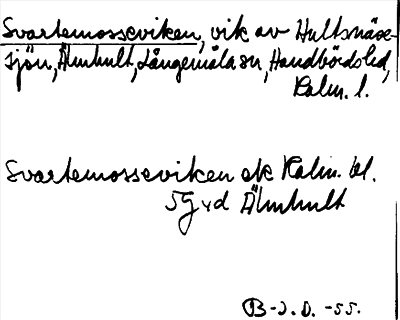 Svartemosseviken, vik av Hultsnäse-
sjön, Älmhult, Långemåla sn, Handbörds hd,
Kalm. l.
Svartemosseviken ek Kalm. bl.
5G vd Älmhult
B-J.D. -55.